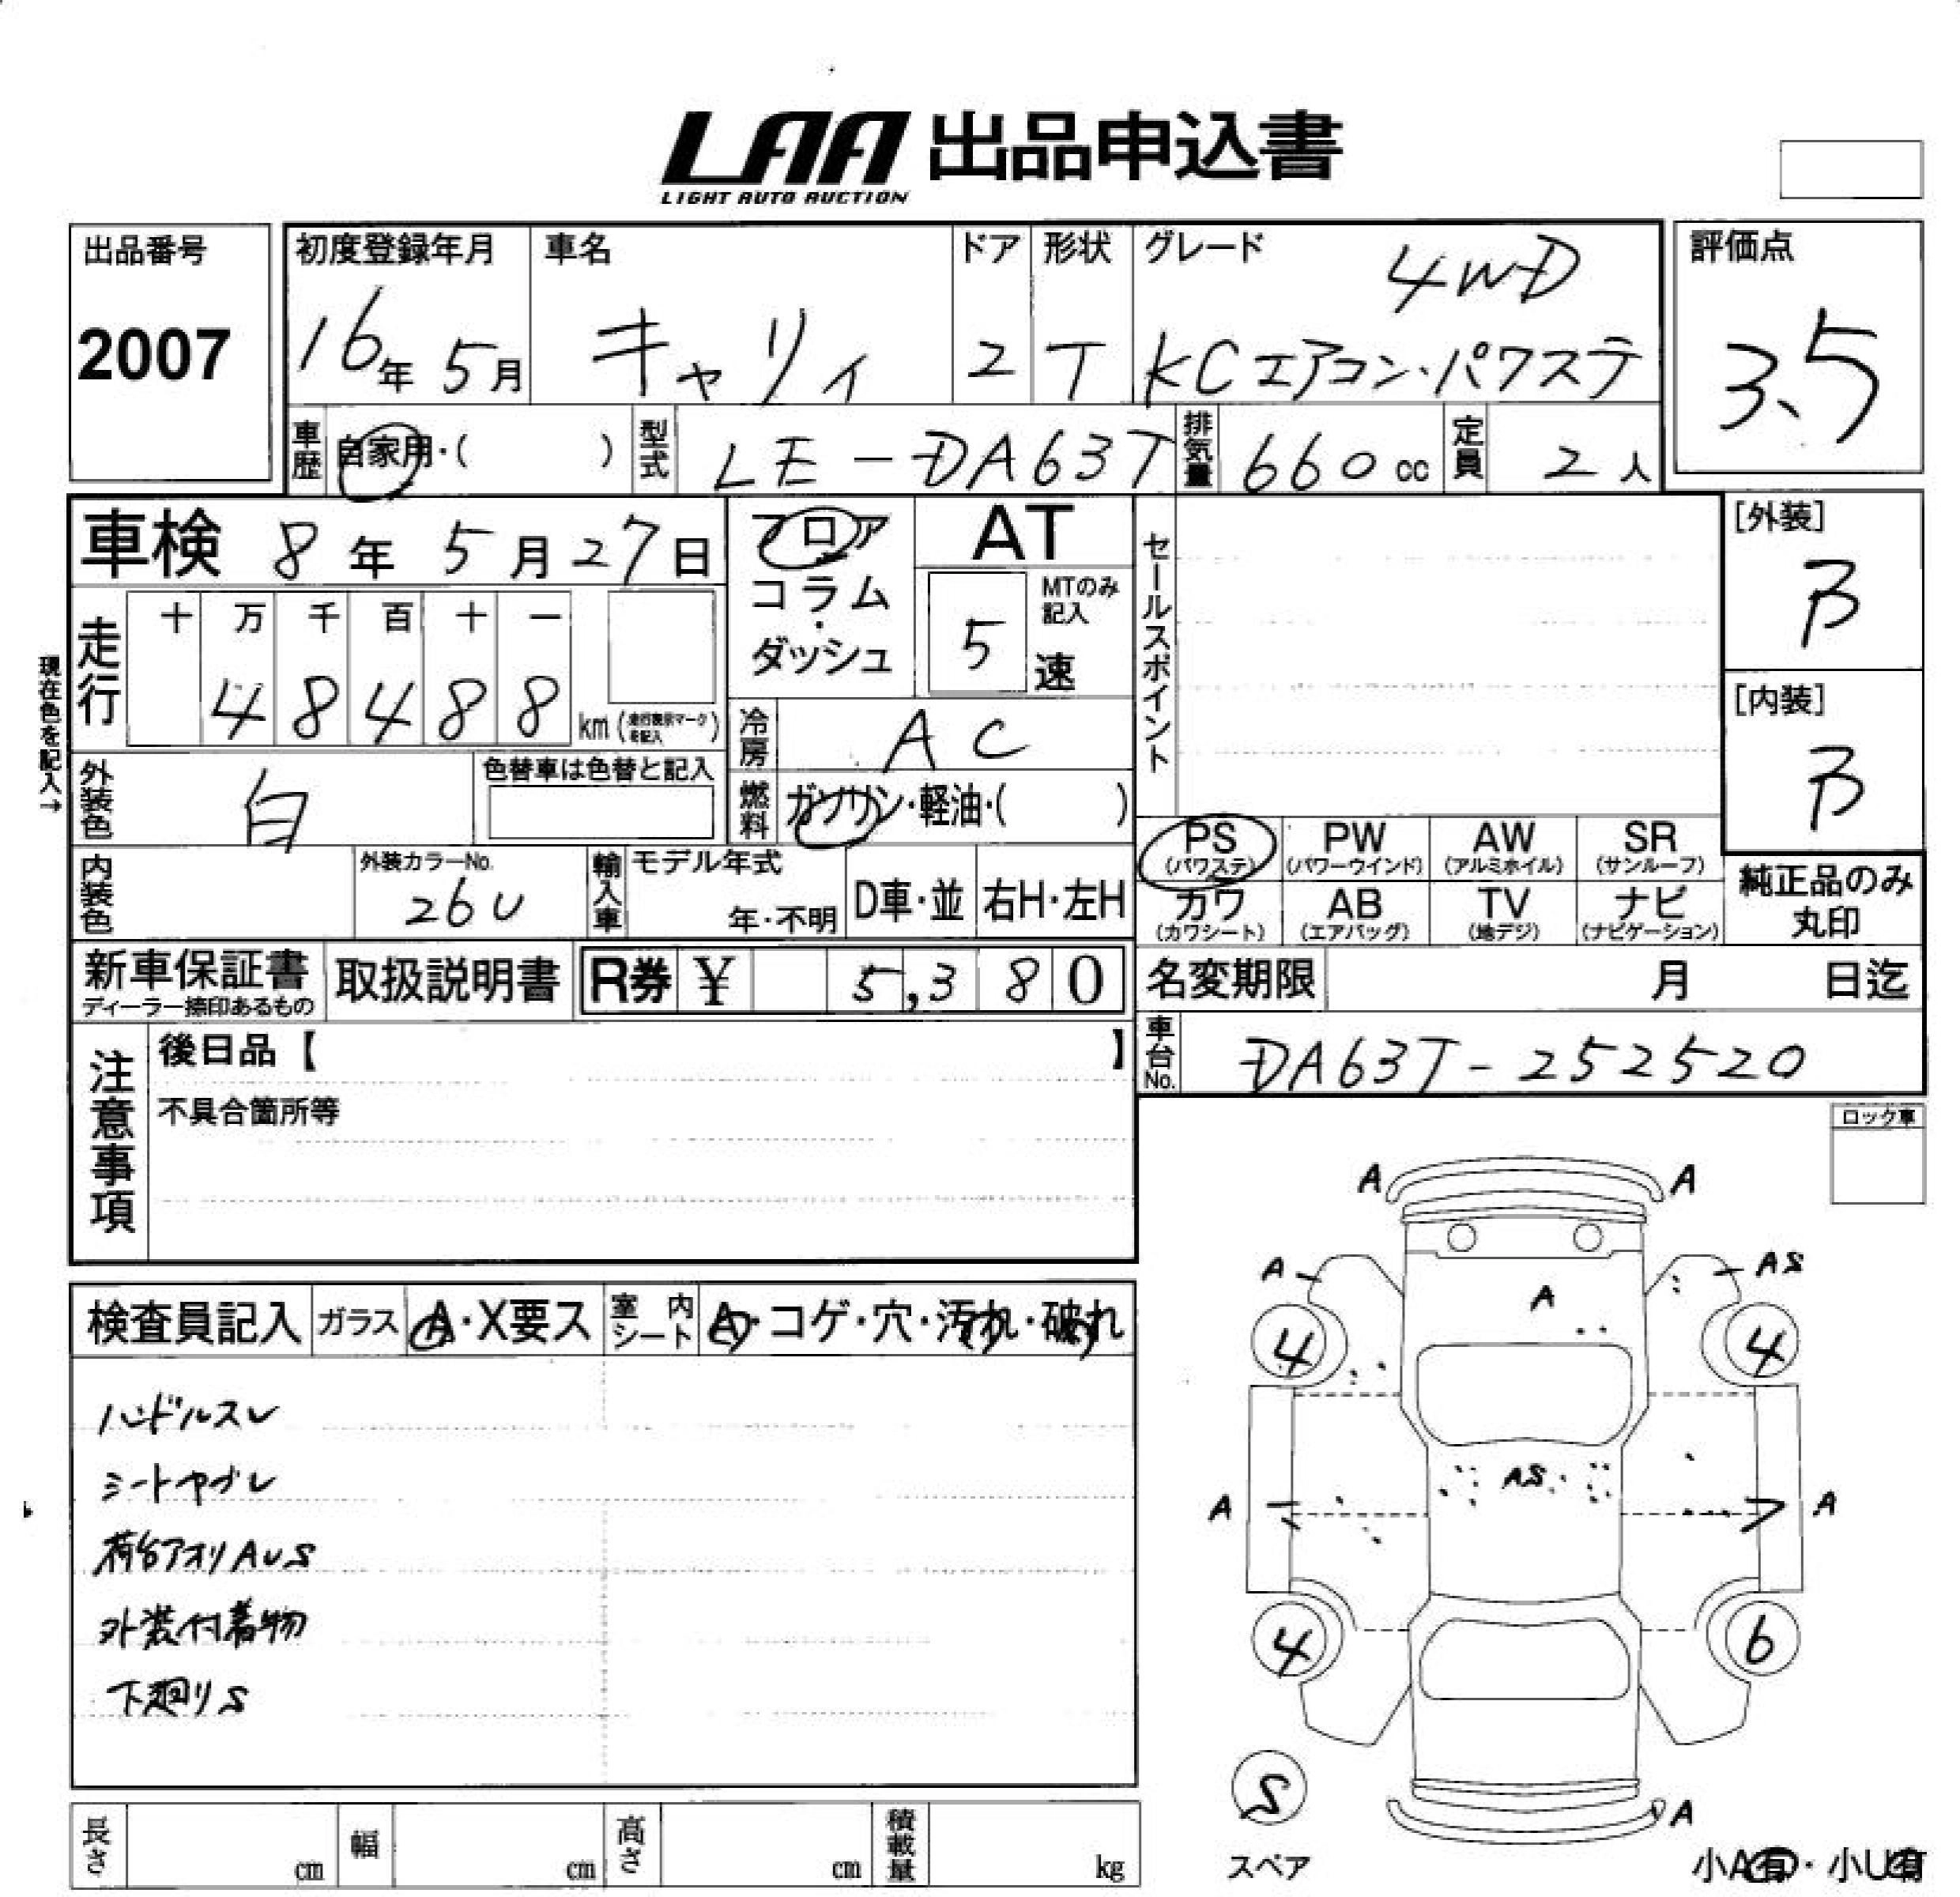 LAA 出品申込書
LIGHT AUTO AUCTION
出品番号
2007
初度登録年月
16年 5月
車名
キャリィ
ドア
2
形状
T
グレード
4WD
KCエアコン・パワステ
評価点
3.5
車歴 自家用・( )
型式 LE-DA63T
排気量 660 cc
定員 2 人
車検 8年 5月 27日
フロア
コラム
・
ダッシュ
AT
5
MTのみ
記入
速
セールスポイント
[外装]
B
[内装]
B
現在色を記入→
走行
十 万 千 百 十 一
4 8 4 8 8 km (走行表示マーク を記入)
冷房 AC
外装色 白
色替車は色替と記入
燃料 ガソリン・軽油・( )
内装色
外装カラーNo.
26U
輸入車 モデル年式
年・不明
D車・並
右H・左H
PS (パワステ)
PW (パワーウインド)
AW (アルミホイル)
SR (サンルーフ)
カワ (カワシート)
AB (エアバッグ)
TV (地デジ)
ナビ (ナビゲーション)
純正品のみ
丸印
新車保証書
ディーラー捺印あるもの
取扱説明書
R券 ¥ 5,380
名変期限 月 日迄
車台No. DA63T-252520
注意事項
後日品【 】
不具合箇所等
ロック車
検査員記入
ガラス A・X要ス
室内シート A・コゲ・穴・汚れ・破れ
ハンドルスレ
シートヤブレ
荷台アオリAUS
外装付着物
下廻りS
A A
A AS
A
4 4
AS
A A
4 6
S
スペア
A
小A有・小U有
長さ cm
幅 cm
高さ cm
積載量 kg